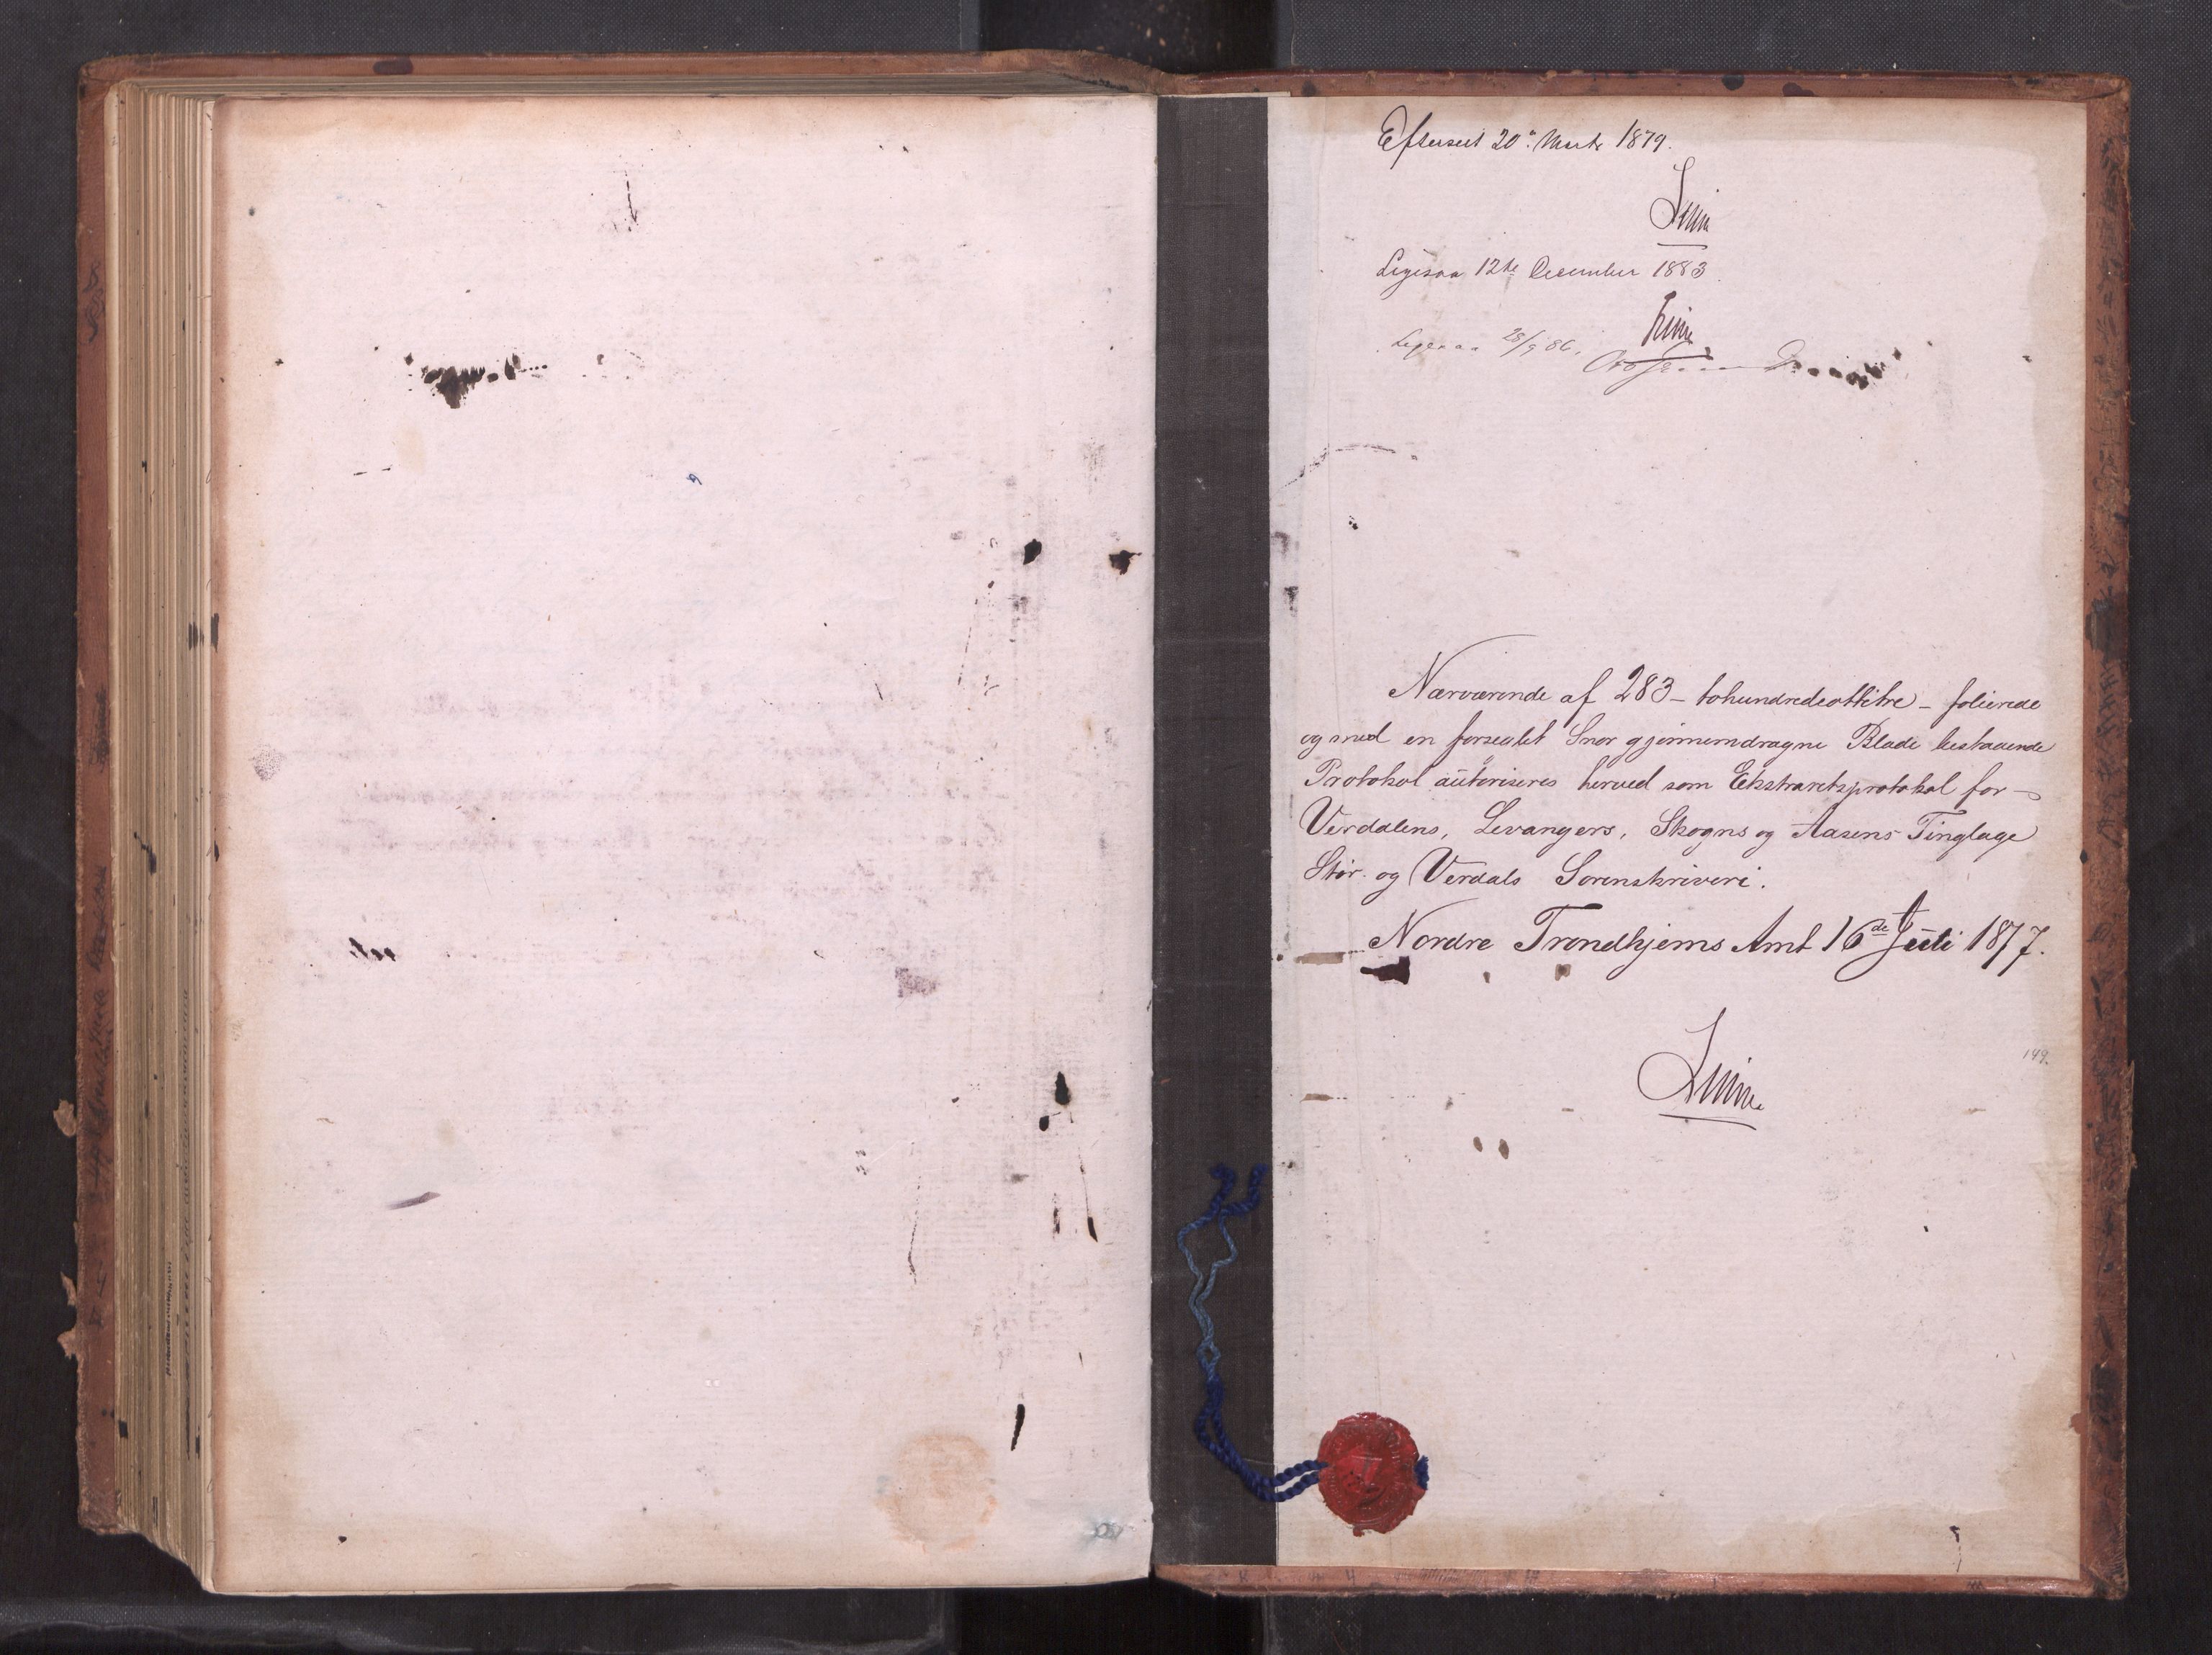 Efterseet 20de Marts 1879.
Ligesaa 12te December 1883.
Ligesaa 28/9 86.
Nærværende af 283 - tohundredeottitre - folierede
og med en forseglet Snor gjennemdragne Blade bestaaende
Protokol autoriseres herved som Ekstraretsprotokol for
Verdalens, Levangers, Skogns og Aasens Tinglage
Stør- og Verdals Sorenskriveri.
Nordre Trondhjems Amt 16de Juli 1877.
149.